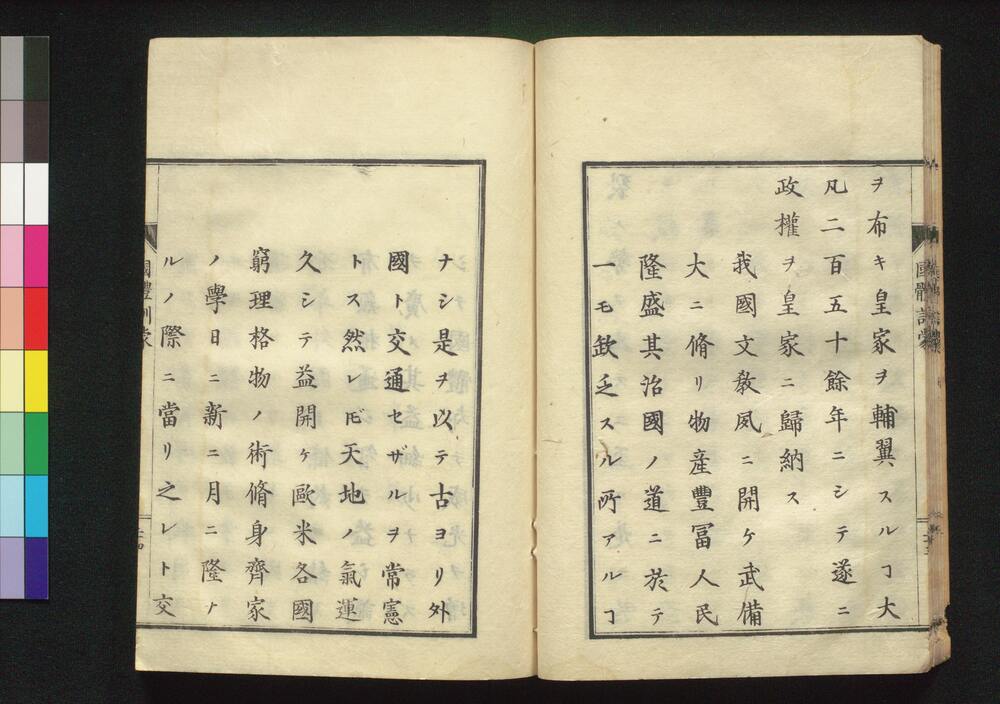 ヲ布キ皇家ヲ輔翼スルヿ大
凡二百五十餘年ニシテ遂ニ
政權ヲ皇家ニ歸納ス
我國文敎夙ニ開ケ武備
大ニ脩リ物産豐冨人民
隆盛其治國ノ道ニ於テ
一モ欽乏スル所アルヿ
ナシ是ヲ以テ古ヨリ外
國ト交通セザルヲ常憲
トス然レ𪜈天地ノ氣運
久シテ益開ケ歐米各國
窮理格物ノ術脩身齊家
ノ學日ニ新ニ月ニ隆ナ
ルノ際ニ當リ之レト交
國體訓蒙
二十四